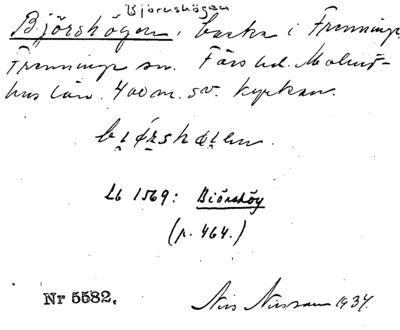 Björnshögen
Björshögen, backa i Frenninge,
Frenninge sn. Färs hd. Malmö-
hus län. 400 m. sv. kyrkan.
Lb 1569: Biörshöy
(p. 464.)
Nr 5582.
Nils Nilsson 1934.